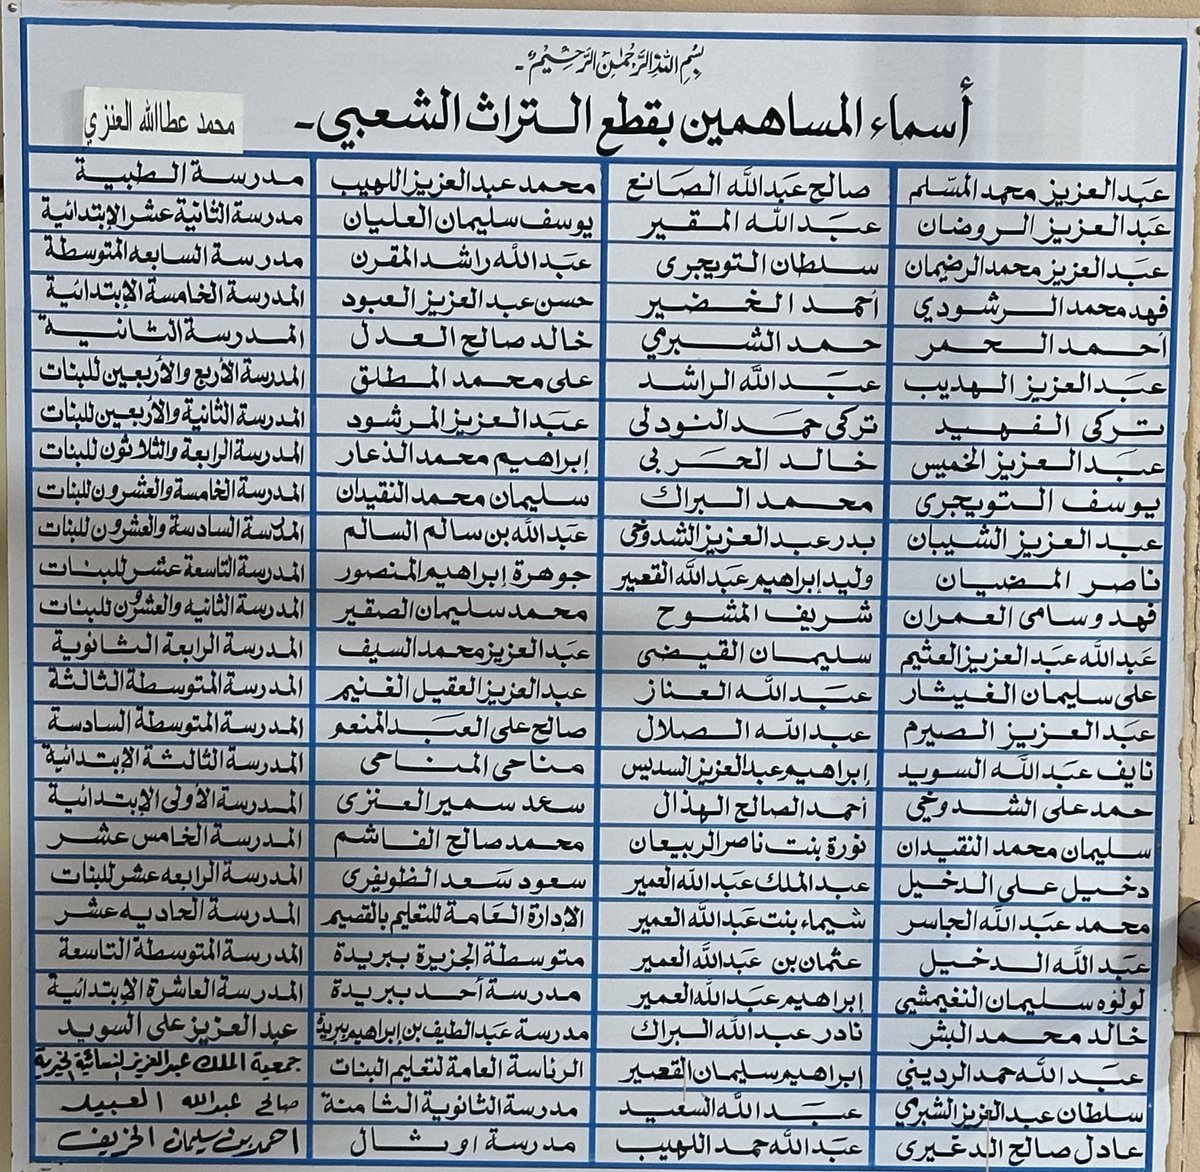 بسم الله الرحمن الرحيم -
أسماء المساهمين بقطع التراث الشعبي -
محمد عطاالله العنزي
عبدالعزيز محمد المسلم صالح عبدالله الصانع محمد عبدالعزيز اللهيب مدرسة الطبية
عبدالعزيز الروضان عبدالله المقير يوسف سليمان العليان مدرسة الثانية عشر الإبتدائية
عبدالعزيز محمد الرضيمان سلطان التويجرى عبدالله راشد المقرن مدرسة السابعه المتوسطة
فهد محمد الرشودي أحمد الخضير حسن عبدالعزيز العبود المدرسة الخامسة الإبتدائية
أحمد الحمر حمد الشبرمي خالد صالح العدل المدرسة الثانية
عبدالعزيز الهديب عبدالله الراشد على محمد المطلق المدرسة الأربع والأربعين للبنات
تركى الفهيد تركى حمد النودلى عبدالعزيز المرشود المدرسة الثانية والأربعين للبنات
عبدالعزيز الخميس خالد الحربى إبراهيم محمد الذعار المدرسة الرابعة والثلاثون للبنات
يوسف التويجرى محمد البراك سليمان محمد النقيدان المدرسة الخامسة والعشرون للبنات
عبدالعزيز الشيبان بدر عبدالعزيز الشدوخى عبدالله بن سالم السالم المدرسة السادسة والعشرون للبنات
ناصر المضيان وليد إبراهيم عبدالله القعير جوهرة إبراهيم المنصور المدرسة التاسعة عشر للبنات
فهد وسامى العمران شريف المشوح محمد سليمان الصقير المدرسة الثانيه والعشرون للبنات
عبدالله عبدالعزيز العثيم سليمان القيضى عبدالعزيز محمد السيف المدرسة الرابعة الثانوية
على سليمان الغيثار عبدالله العناز عبدالعزيز العقيل الغنيم المدرسة المتوسطة الثالثة
عبدالعزيز الصيرم عبدالله الصلال صالح على العبدالمنعم المدرسة المتوسطة السادسة
نايف عبدالله السويد إبراهيم عبدالعزيز السديس مناحى المناحى المدرسة الثالثة الإبتدائية
حمد على الشدوخي أحمد الصالح الهذال سعد سمير العنزى المدرسة الأولى الإبتدائية
سليمان محمد النقيدان نورة بنت ناصر الربيعان محمد صالح الفاشم المدرسة الخامس عشر
دخيل على الدخيل عبدالملك عبدالله العمير سعود سعد الظويفرى المدرسة الرابعه عشر للبنات
محمد عبدالله الجاسر شيماء بنت عبدالله العمير الإدارة العامة للتعليم بالقصيم المدرسة الحاديه عشر
عبدالله الدخيل عثمان بن عبدالله العمير متوسطة الجزيرة ببريدة المدرسة المتوسطة التاسعة
لولوه سليمان النغيمشي إبراهيم عبدالله العمير مدرسة أحد ببريدة المدرسة العاشرة الإبتدائية
خالد محمد البشر نادر عبدالله البراك مدرسة عبدالطيف بن إبراهيم ببريدة عبدالعزيز على السويد
عبدالله حمد الرديني إبراهيم سليمان القصير الرئاسة العامة لتعليم البنات جمعية الملك عبدالعزيز لنسائية الخيرية
سلطان عبدالعزيز الشبرمي عبدالله السعيد مدرسة الثانوية الثامنة صالح عبدالله العبيد
عادل صالح الدغيرى عبدالله حمد اللهيب مدرسة اوثال احمد بن سليمان الخزيف